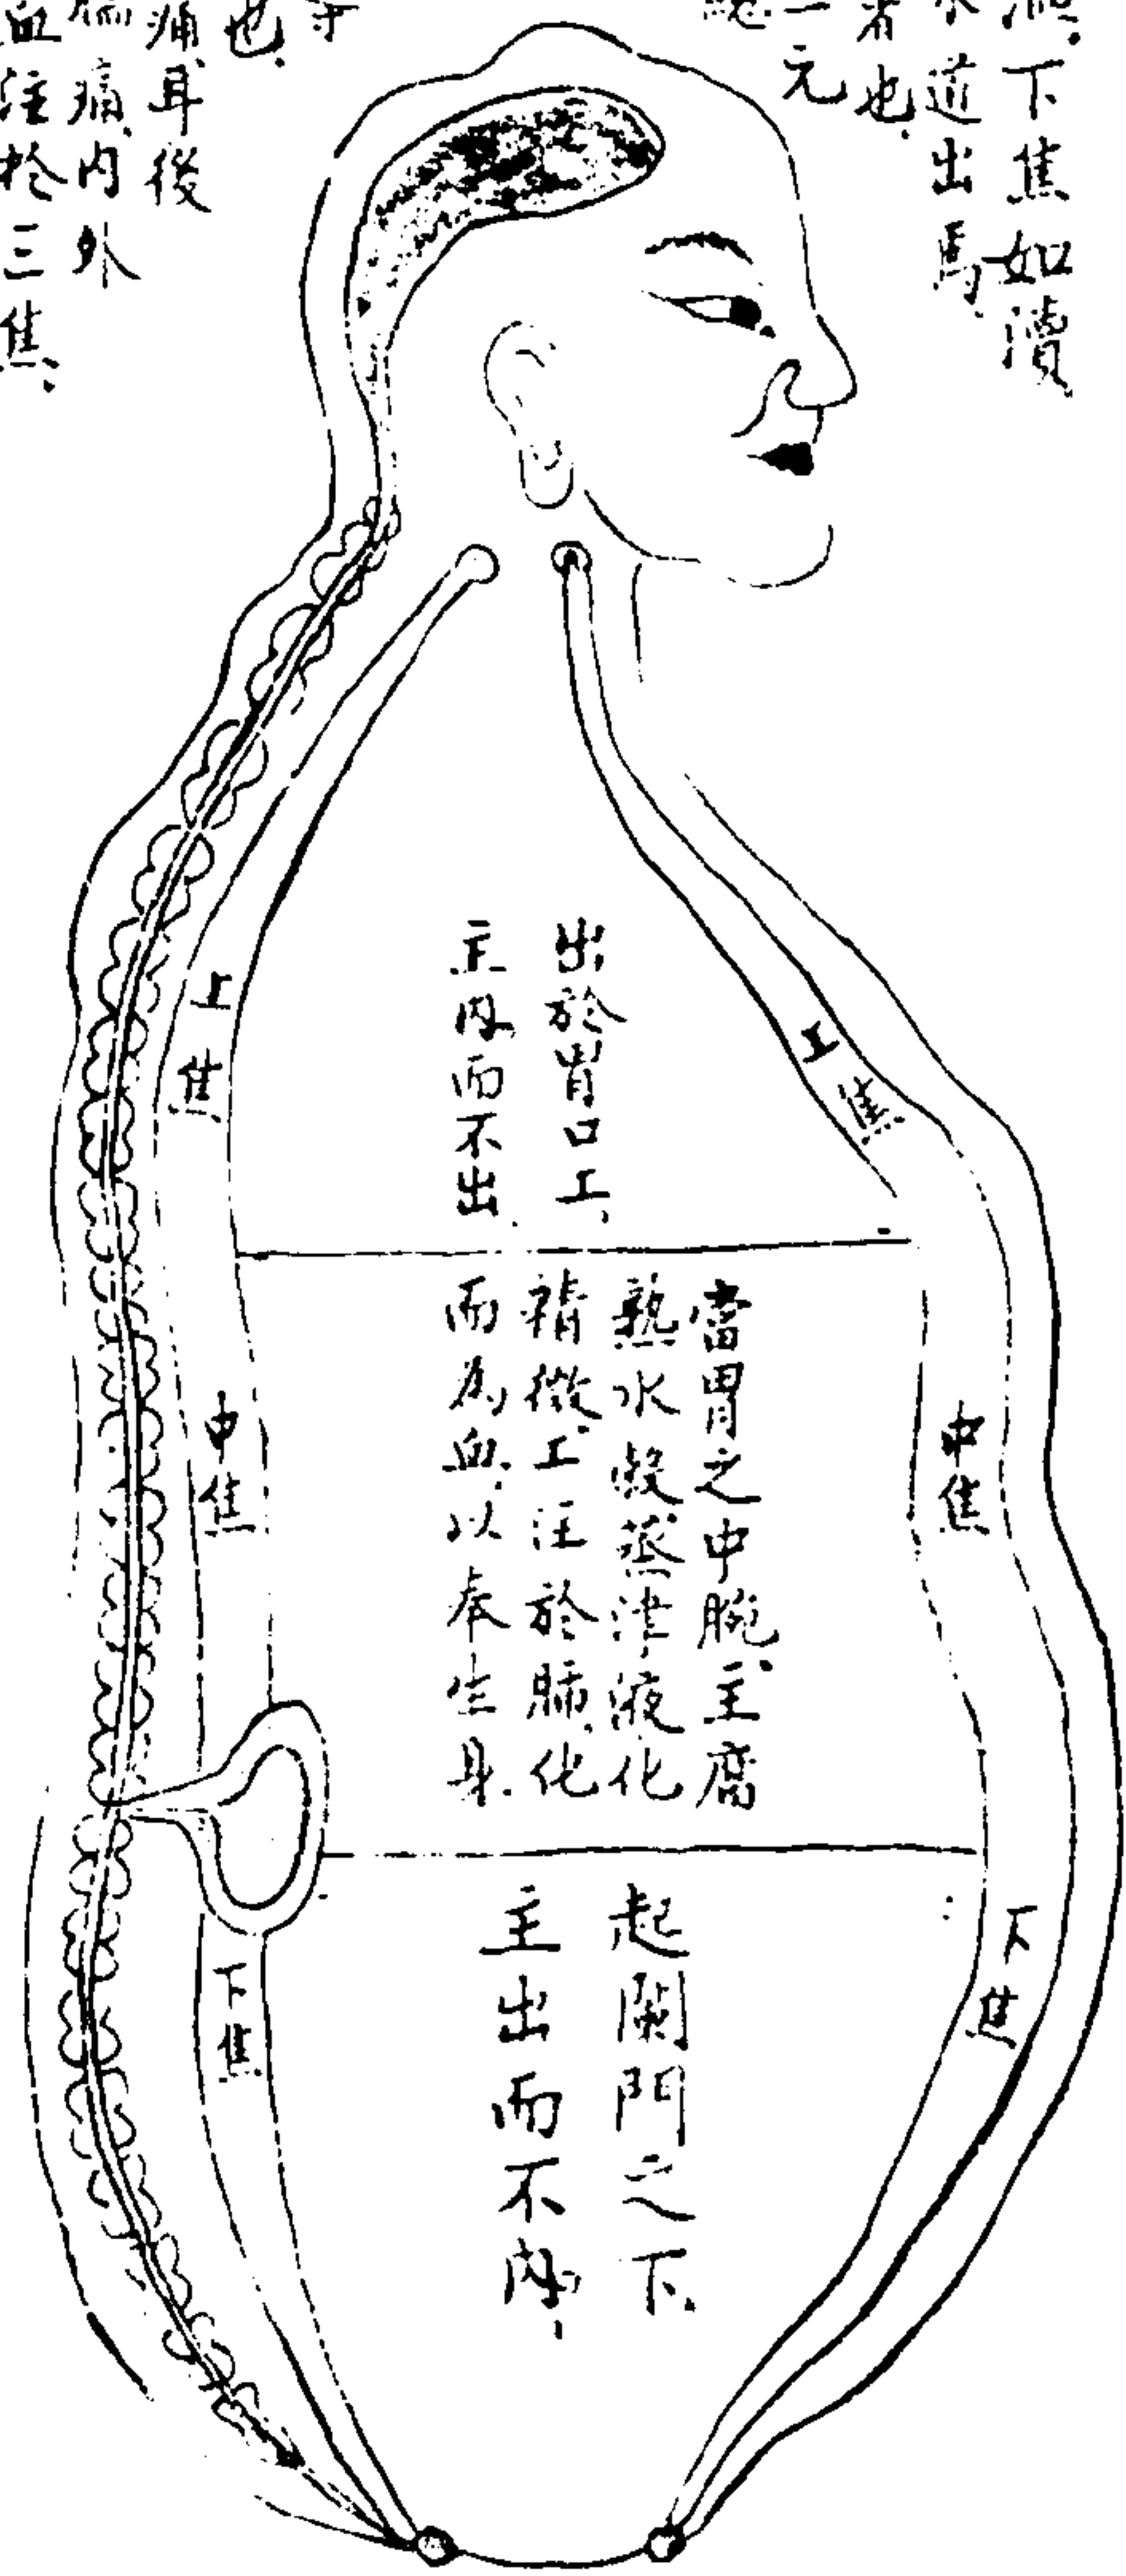 漚、下焦如瀆、
水道出焉、
者也、
一元
也、
痛、耳後
痛、內外
血注於三焦、
上焦
上焦
出於胃口上、
主內而不出、
中焦
中焦
當胃之中脘、主腐
熟水穀、蒸津液、化
精微、上注於肺、化
而為血、以奉生身、
下焦
下焦
起闌門之下、
主出而不內、